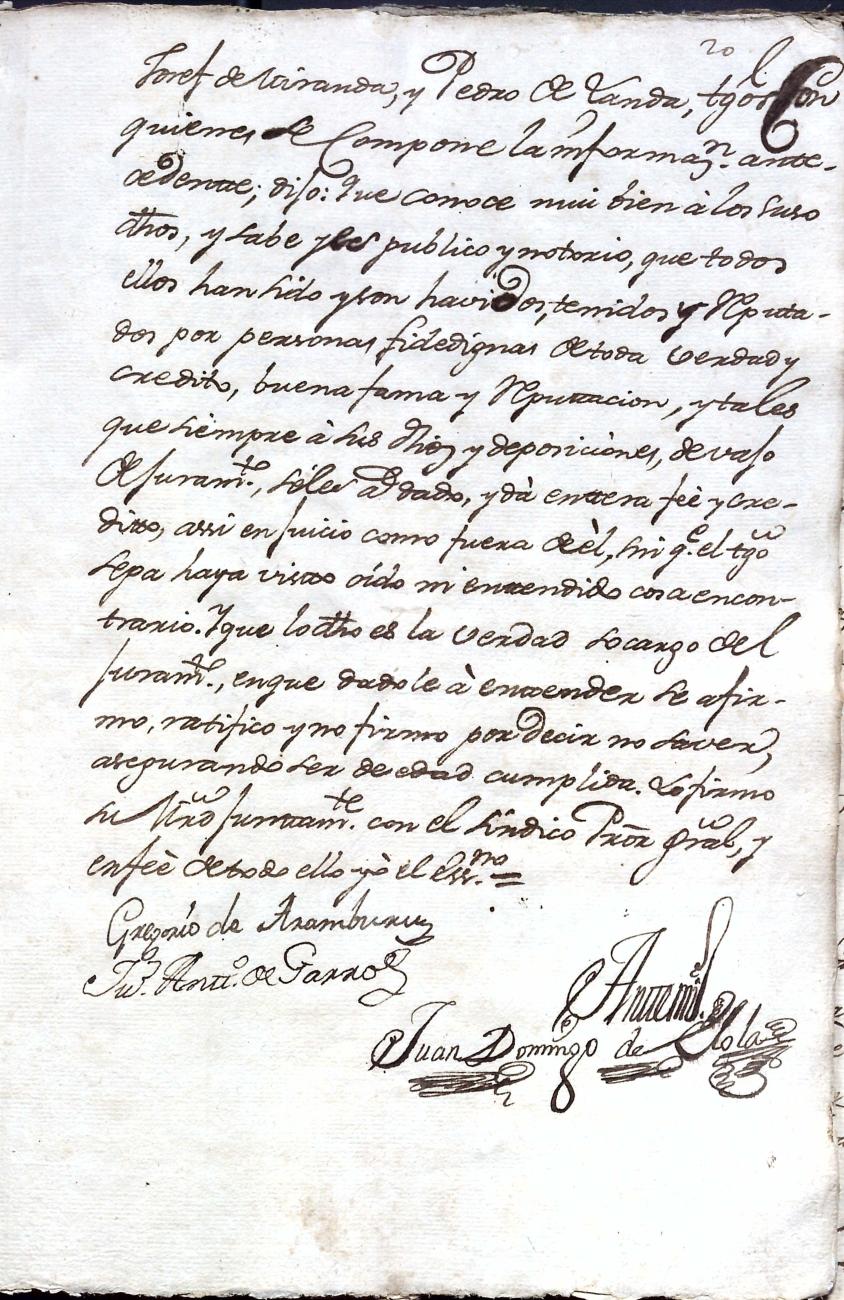 20
Josef de Miranda, y Pedro de Landa, tgos Con
quienes se Compone la informazn. ante-
cedente; dijo: Que conoce mui bien à los suso
dhos, y sabe y es publico y notorio, que todos
ellos han sido y son havidos, tenidos y Reputa-
dos por personas fidedignas de toda verdad y
credito, buena fama y Reputacion, y tales
que siempre à sus dhos y deposiciònes, de vajo
de juramto., seles à dado, y dà entera feè y cre-
ditto, assi en juicio como fuera de èl, sin qe. el tgo
sepa haya visto oído ni entendido cosa encon-
trario. Y que lo dho es la verdad socargo del
juramto., en que dadole à entender se afir-
mo, ratifico y no firmo por decir no saver,
asegurando ser de edad cumplida. Lo firmo
su Mrd juntamte. con el Síndico Pror gral, y
en feè de todo ello yò el Essno. =
Gregorio de Aramburu
Jun. Antto. de Garro
Antemi
Juan Domingo de